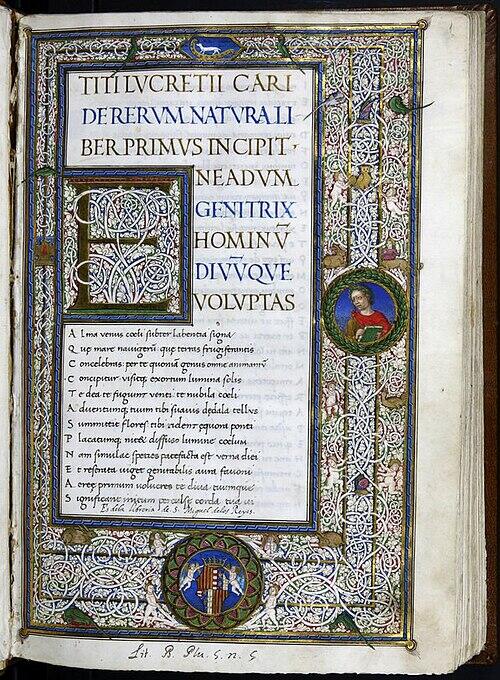 TITI LVCRETII CARI
DE RERVM NATVRA LI
BER PRIMVS INCIPIT·
E NEADVM
GENITRIX
HOMINŪ
DIVŪQVE
VOLVPTAS
A lma venus cœli subter labentia signa
Q uę mare navigerū quę terras frugiferentis
C oncelebras: per te quoniā genus omne animantū
C oncipitur visitq; exortum lumina solis
T e dea te fugiunt venti te nubila cœli
A dventumq; tuum tibi suavis dędala tellus
S ummittit flores tibi rident ęquora ponti
P lacatumq; nitet diffuso lumine cœlum
N am simulac species patefacta est verna diei
E t reserata viget genitabilis aura favoni
A erię primum volucres te diva tuumque
S ignificant initum perculsę corda tua vi
Es dela libreria de S. Miguel delos Reyes.
Lit. B. Plu. 5. n. 5